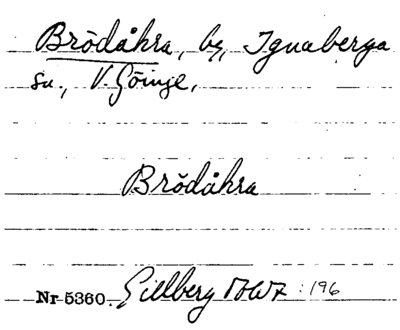 Brödåkra, by, Ignaberga
sn., V. Göinge,
Brödåkra
Nr 5360. Gillberg :196